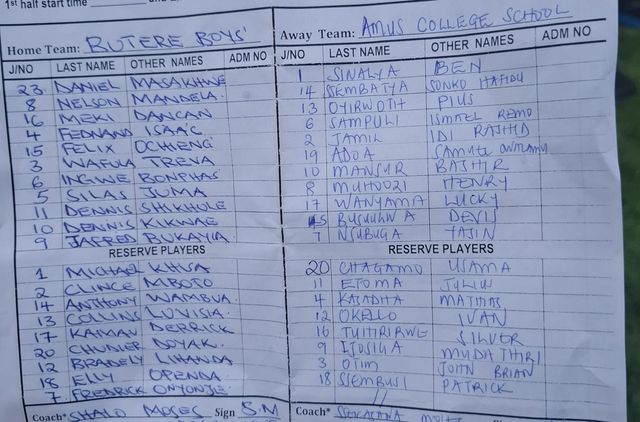 1st half start time
Home Team: BUTERE BOYS'
J/NO LAST NAME OTHER NAMES ADM NO
23 DANIEL MASAKHWE
8 NELSON MANDELA.
16 MEKI DANCAN
4 FEDNAND ISAAC
15 FELIX OCHIENG
3 WAFULA TREVA
6 INGWE BONPHAS
5 SILAS JUMA
11 DENNIS SHIKHOLE
10 DENNIS KIKWAE
9 JAFRED BUKAYIA
RESERVE PLAYERS
1 MICHAEL KHISA
2 CLINCE MBOTO
14 ANTHONY WAMBUA.
13 COLLINS LUVISIA.
17 KAIMAN DERRICK
20 CHUNIER DOYAK.
12 BRADELY LIHANDA
18 ELLY OPENDA.
7 FREDRICK ONYONJE
Coach* SHALO MOSES Sign S.M
Away Team: AMUS COLLEGE SCHOOL
J/NO LAST NAME OTHER NAMES ADM NO
1 SINALYA BEN
14 SSEMBATYA SONKO HAFIDU
13 OYIRWOTH PIUS
6 SAMPULI ISMAEL REMO
2 JAMIL IDI RASHID
19 ADOA SAMUEL
10 MANSUR BASHIR
8 MUHOOZI HENRY
17 WANYAMA LUCKY
5 BUSULWA DEVIS
7 NSUBUGA YASIN
RESERVE PLAYERS
20 CHAGAMO USAMA
11 ETOMA JULIUS
4 KASADHA MATHIAS
12 OKELLO IVAN
16 TUIHRIRWE SILVER
9 MUDATHIRI
3 OTIM JOHN BRIAN
18 SSEMBUSI PATRICK
Coach*